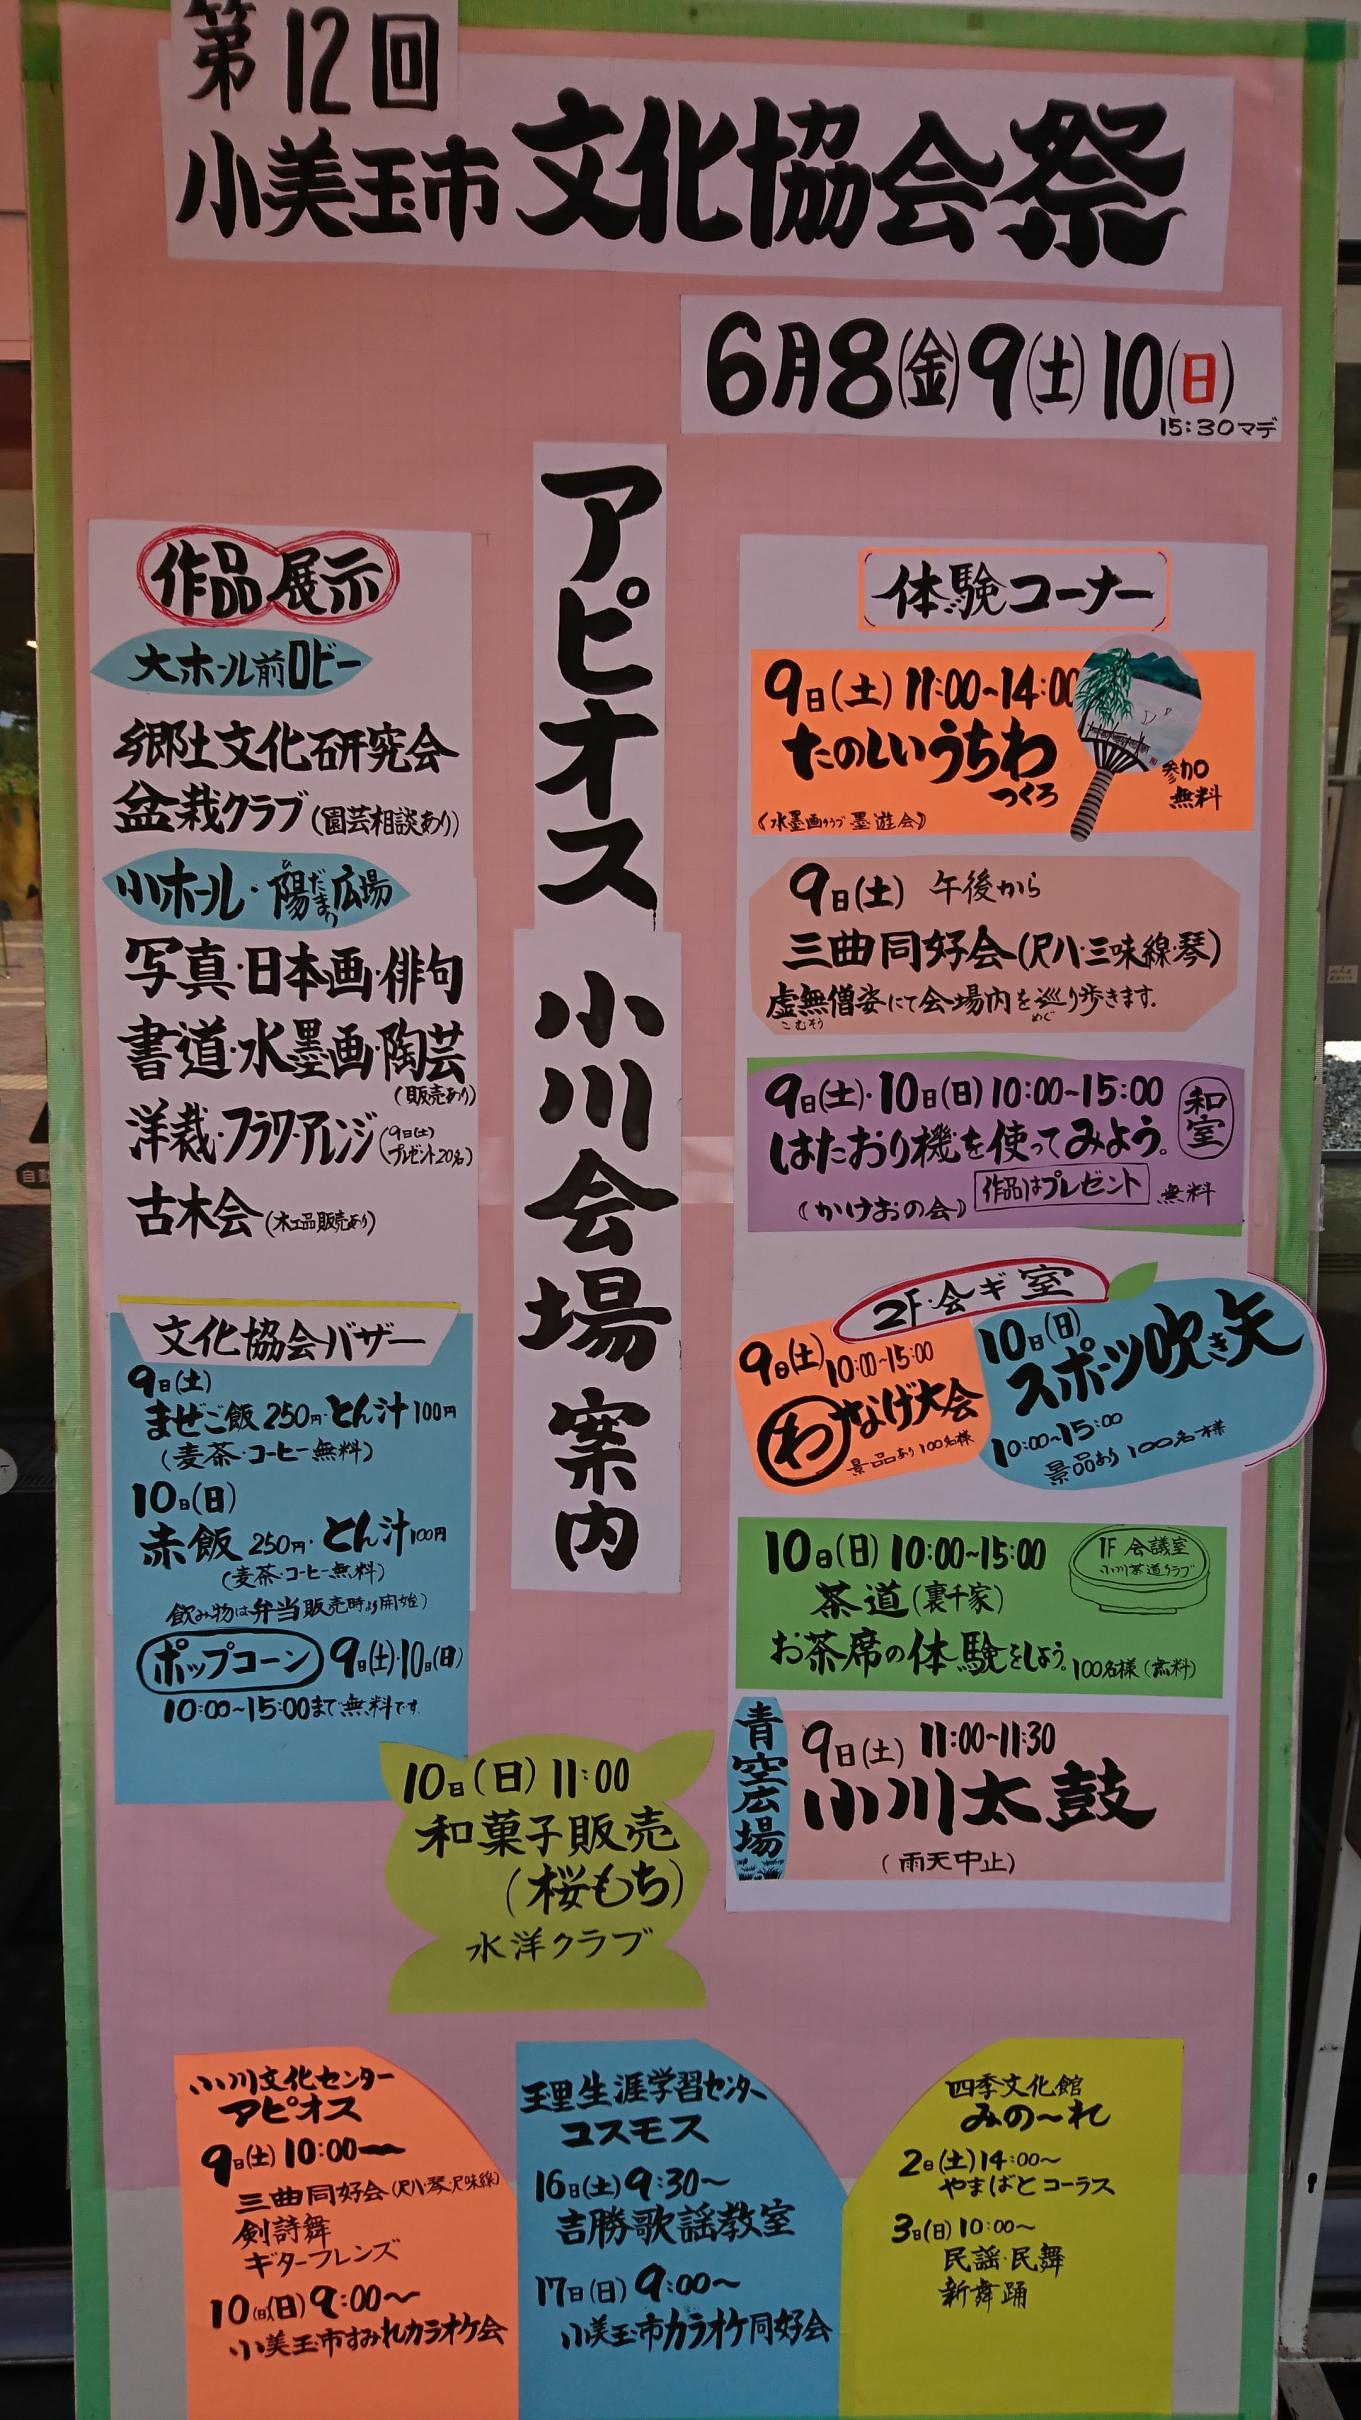 第12回
小美玉市文化協会祭
6月8(金)9(土)10(日)
15:30マデ
アピオス 小川会場 案内
作品展示
大ホール前ロビー
郷土文化研究会
盆栽クラブ(園芸相談あり)
小ホール・陽だまり広場
ひ
写真・日本画・俳句
書道・水墨画・陶芸
(販売あり)
洋裁・フラワーアレンジ(9日(土)プレゼント20名)
古木会(木工品販売あり)
文化協会バザー
9日(土)
まぜご飯250円・とん汁100円
(麦茶・コーヒー無料)
10日(日)
赤飯 250円・とん汁100円
(麦茶・コーヒー無料)
飲み物は弁当販売時より開始)
ポップコーン 9日(土)・10日(日)
10:00~15:00まで無料です
10日(日)11:00
和菓子販売
(桜もち)
水洋クラブ
体験コーナー
9日(土)11:00~14:00
たのしいうちわ
つくろ
参加
無料
《水墨画クラブ墨遊会》
9日(土) 午後から
三曲同好会(尺八・三味線・琴)
虚無僧姿にて会場内を巡り歩きます。
こむそう めぐ
9日(土)・10日(日)10:00~15:00
和室
はたおり機を使ってみよう。
《かけおの会》 作品はプレゼント 無料
2F・会ギ室
9日(土)10:00~15:00
わなげ大会
景品あり100名様
10日(日)
スポーツ吹き矢
10:00~15:00
景品あり100名様
10日(日)10:00~15:00
1F 会議室
小川茶道クラブ
茶道(裏千家)
お茶席の体験をしよう。100名様(無料)
青空広場
9日(土) 11:00~11:30
小川太鼓
(雨天中止)
小川文化センター
アピオス
9日(土)10:00~
三曲同好会(尺八・琴・尺味線)
剣詩舞
ギターフレンズ
10(日)(日)9:00~
小美玉市すみれカラオケ会
玉里生涯学習センター
コスモス
16日(土)9:30~
吉勝歌謡教室
17日(日)9:00~
小美玉市カラオケ同好会
四季文化館
みの~れ
2日(土)14:00~
やまばとコーラス
3日(日)10:00~
民謡・民舞
新舞踊